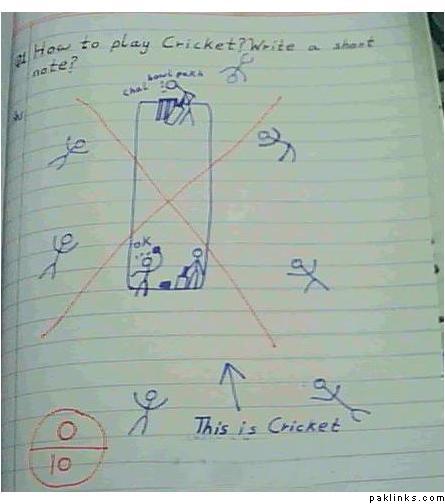 Q1 How to play Cricket? Write a short
note?
chal bowl pakh
ok
This is Cricket
0
10
paklinks.com